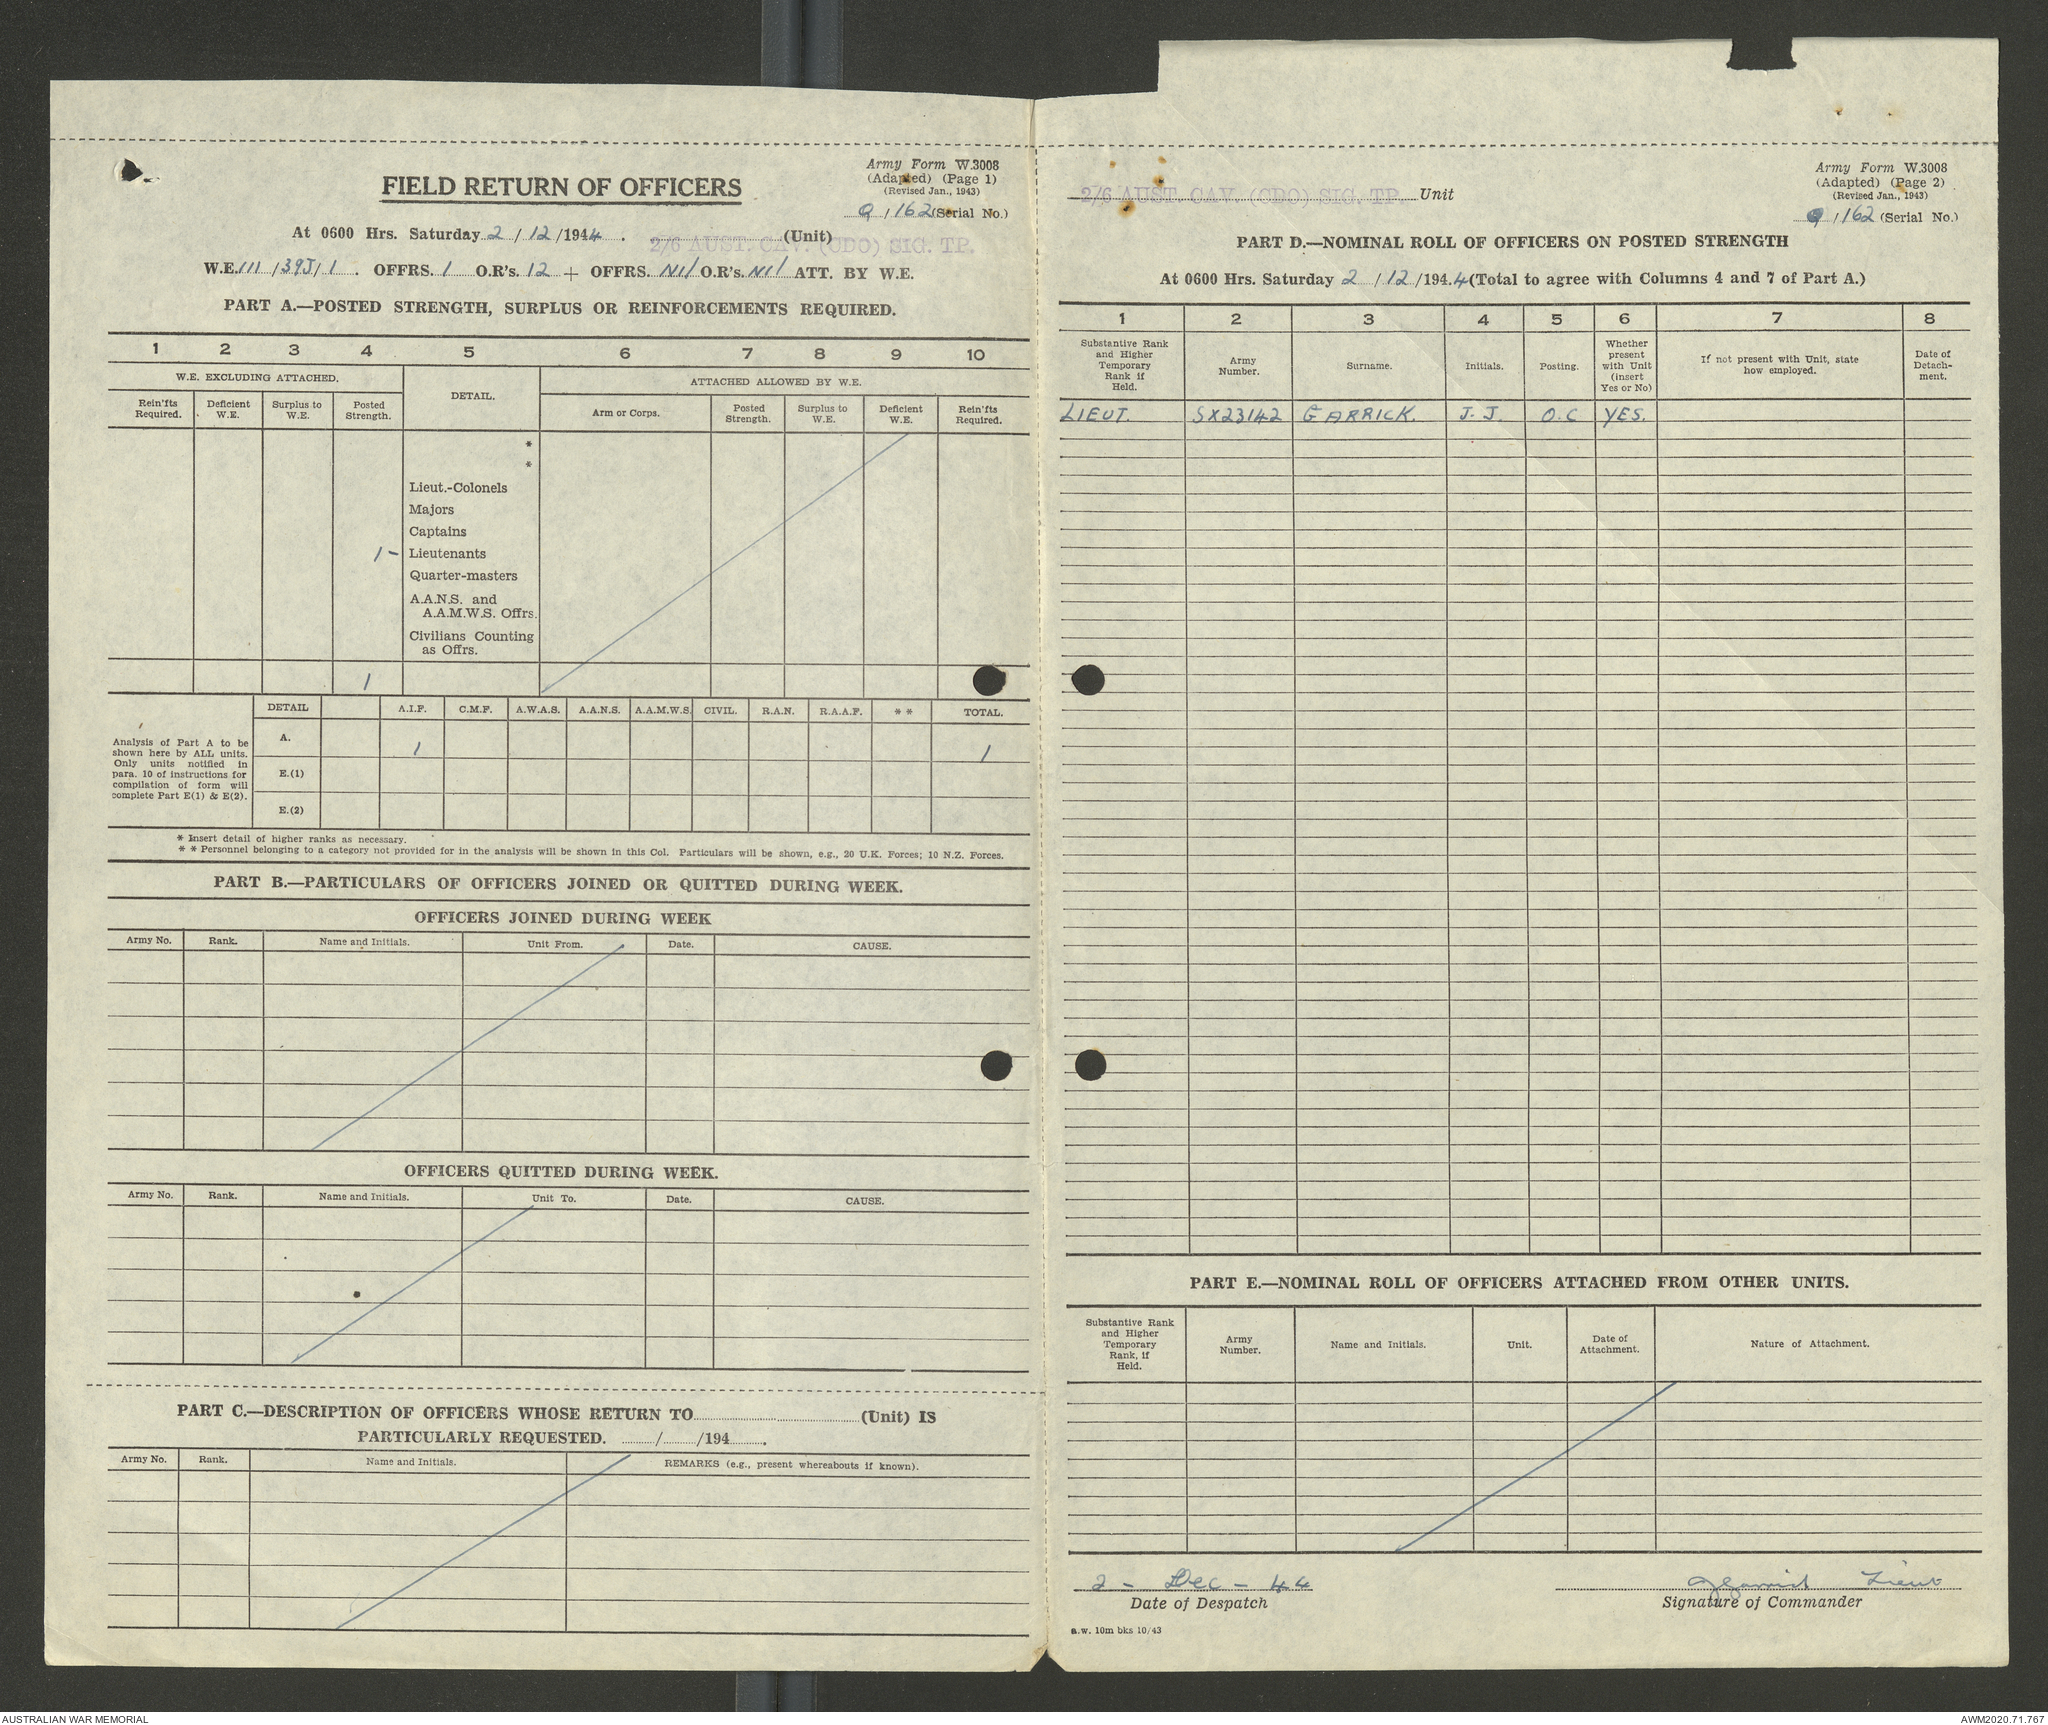 Army Form W.3008
(Adapted) (Page 1)
(Revised Jan., 1943)
FIELD RETURN OF OFFICERS
O / 162 (Serial No.)
At 0600 Hrs. Saturday 2 / 12 /1944. 2/6 AUST. CAV. (CDO) SIG. TP. (Unit)
W.E. III /39J/1. OFFRS. 1 O.R's. 12 + OFFRS. Nil O.R's. Nil ATT. BY W.E.
PART A.—POSTED STRENGTH, SURPLUS OR REINFORCEMENTS REQUIRED.
1 2 3 4 5 6 7 8 9 10
W.E. EXCLUDING ATTACHED. DETAIL. ATTACHED ALLOWED BY W.E.
Rein'fts Required. Deficient W.E. Surplus to W.E. Posted Strength. Arm or Corps. Posted Strength. Surplus to W.E. Deficient W.E. Rein'fts Required.
*
*
Lieut.-Colonels
Majors
Captains
1 - Lieutenants
Quarter-masters
A.A.N.S. and
A.A.M.W.S. Offrs.
Civilians Counting
as Offrs.
1
DETAIL A.I.F. C.M.F. A.W.A.S. A.A.N.S. A.A.M.W.S. CIVIL. R.A.N. R.A.A.F. * * TOTAL.
Analysis of Part A to be
shown here by ALL units.
Only units notified in
para. 10 of instructions for
compilation of form will
complete Part E(1) & E(2).
A. 1 1
E.(1)
E.(2)
* Insert detail of higher ranks as necessary.
* * Personnel belonging to a category not provided for in the analysis will be shown in this Col. Particulars will be shown, e.g., 20 U.K. Forces; 10 N.Z. Forces.
PART B.—PARTICULARS OF OFFICERS JOINED OR QUITTED DURING WEEK.
OFFICERS JOINED DURING WEEK
Army No. Rank. Name and Initials. Unit From. Date. CAUSE.
OFFICERS QUITTED DURING WEEK.
Army No. Rank. Name and Initials. Unit To. Date. CAUSE.
PART C.—DESCRIPTION OF OFFICERS WHOSE RETURN TO (Unit) IS
PARTICULARLY REQUESTED. / /194 .
Army No. Rank. Name and Initials. REMARKS (e.g., present whereabouts if known).
Army Form W.3008
(Adapted) (Page 2)
(Revised Jan., 1943)
2/6 AUST. CAV. (CDO) SIG. TP. Unit
O / 162 (Serial No.)
PART D.—NOMINAL ROLL OF OFFICERS ON POSTED STRENGTH
At 0600 Hrs. Saturday 2 / 12 /194.4 (Total to agree with Columns 4 and 7 of Part A.)
1 2 3 4 5 6 7 8
Substantive Rank and Higher Temporary Rank if Held. Army Number. Surname. Initials. Posting. Whether present with Unit (insert Yes or No) If not present with Unit, state how employed. Date of Detach-ment.
LIEUT. SX23142 GARRICK. J. J. O.C YES.
PART E.—NOMINAL ROLL OF OFFICERS ATTACHED FROM OTHER UNITS.
Substantive Rank and Higher Temporary Rank, if Held. Army Number. Name and Initials. Unit. Date of Attachment. Nature of Attachment.
2 - Dec - 44 JJGarrick Lieut
Date of Despatch Signature of Commander
a.w. 10m bks 10/43
AUSTRALIAN WAR MEMORIAL AWM2020.71.767